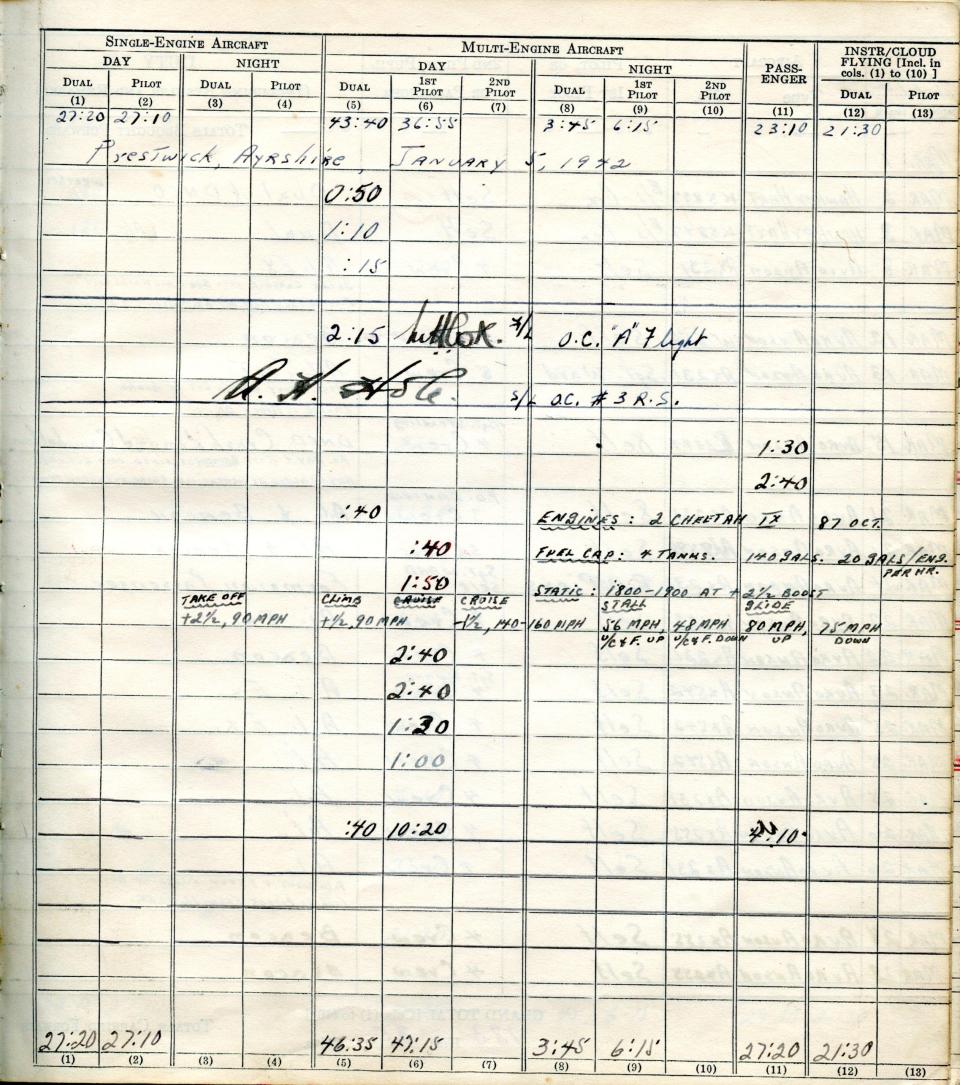 SINGLE-ENGINE AIRCRAFT MULTI-ENGINE AIRCRAFT PASS-ENGER INSTR/CLOUD FLYING [Incl. in cols. (1) to (10) ]
DAY NIGHT DAY NIGHT
DUAL PILOT DUAL PILOT DUAL 1ST PILOT 2ND PILOT DUAL 1ST PILOT 2ND PILOT DUAL PILOT
(1) (2) (3) (4) (5) (6) (7) (8) (9) (10) (11) (12) (13)
27:20 27:10 43:40 36:55 3:45 6:15 23:10 21:30
Prestwick, Ayrshire, January 5, 1942
0:50
1:10
:15
2:15 F/L O.C. "A" Flight
A. H. Hole. S/L O.C. #3 R.S.
1:30
2:40
:40 ENGINES: 2 CHEETAH IX 87 OCT.
:40 FUEL CAP: 4 TANKS. 140 GALS. 20 GALS/ENG. PER HR.
1:50 STATIC: 1800-1900 AT +2½ BOOST
TAKE OFF CLIMB CRUISE CRUISE STALL GLIDE
+2½, 90 MPH +½, 90 MPH -1½, 140-160 MPH 56 MPH, 48 MPH 80 MPH, 75 MPH
U/C & F. UP U/C & F. DOWN UP DOWN
2:40
2:40
1:30
1:00
:40 10:20 4:10
27:20 27:10 46:35 47:15 3:45 6:15 27:20 21:30
(1) (2) (3) (4) (5) (6) (7) (8) (9) (10) (11) (12) (13)